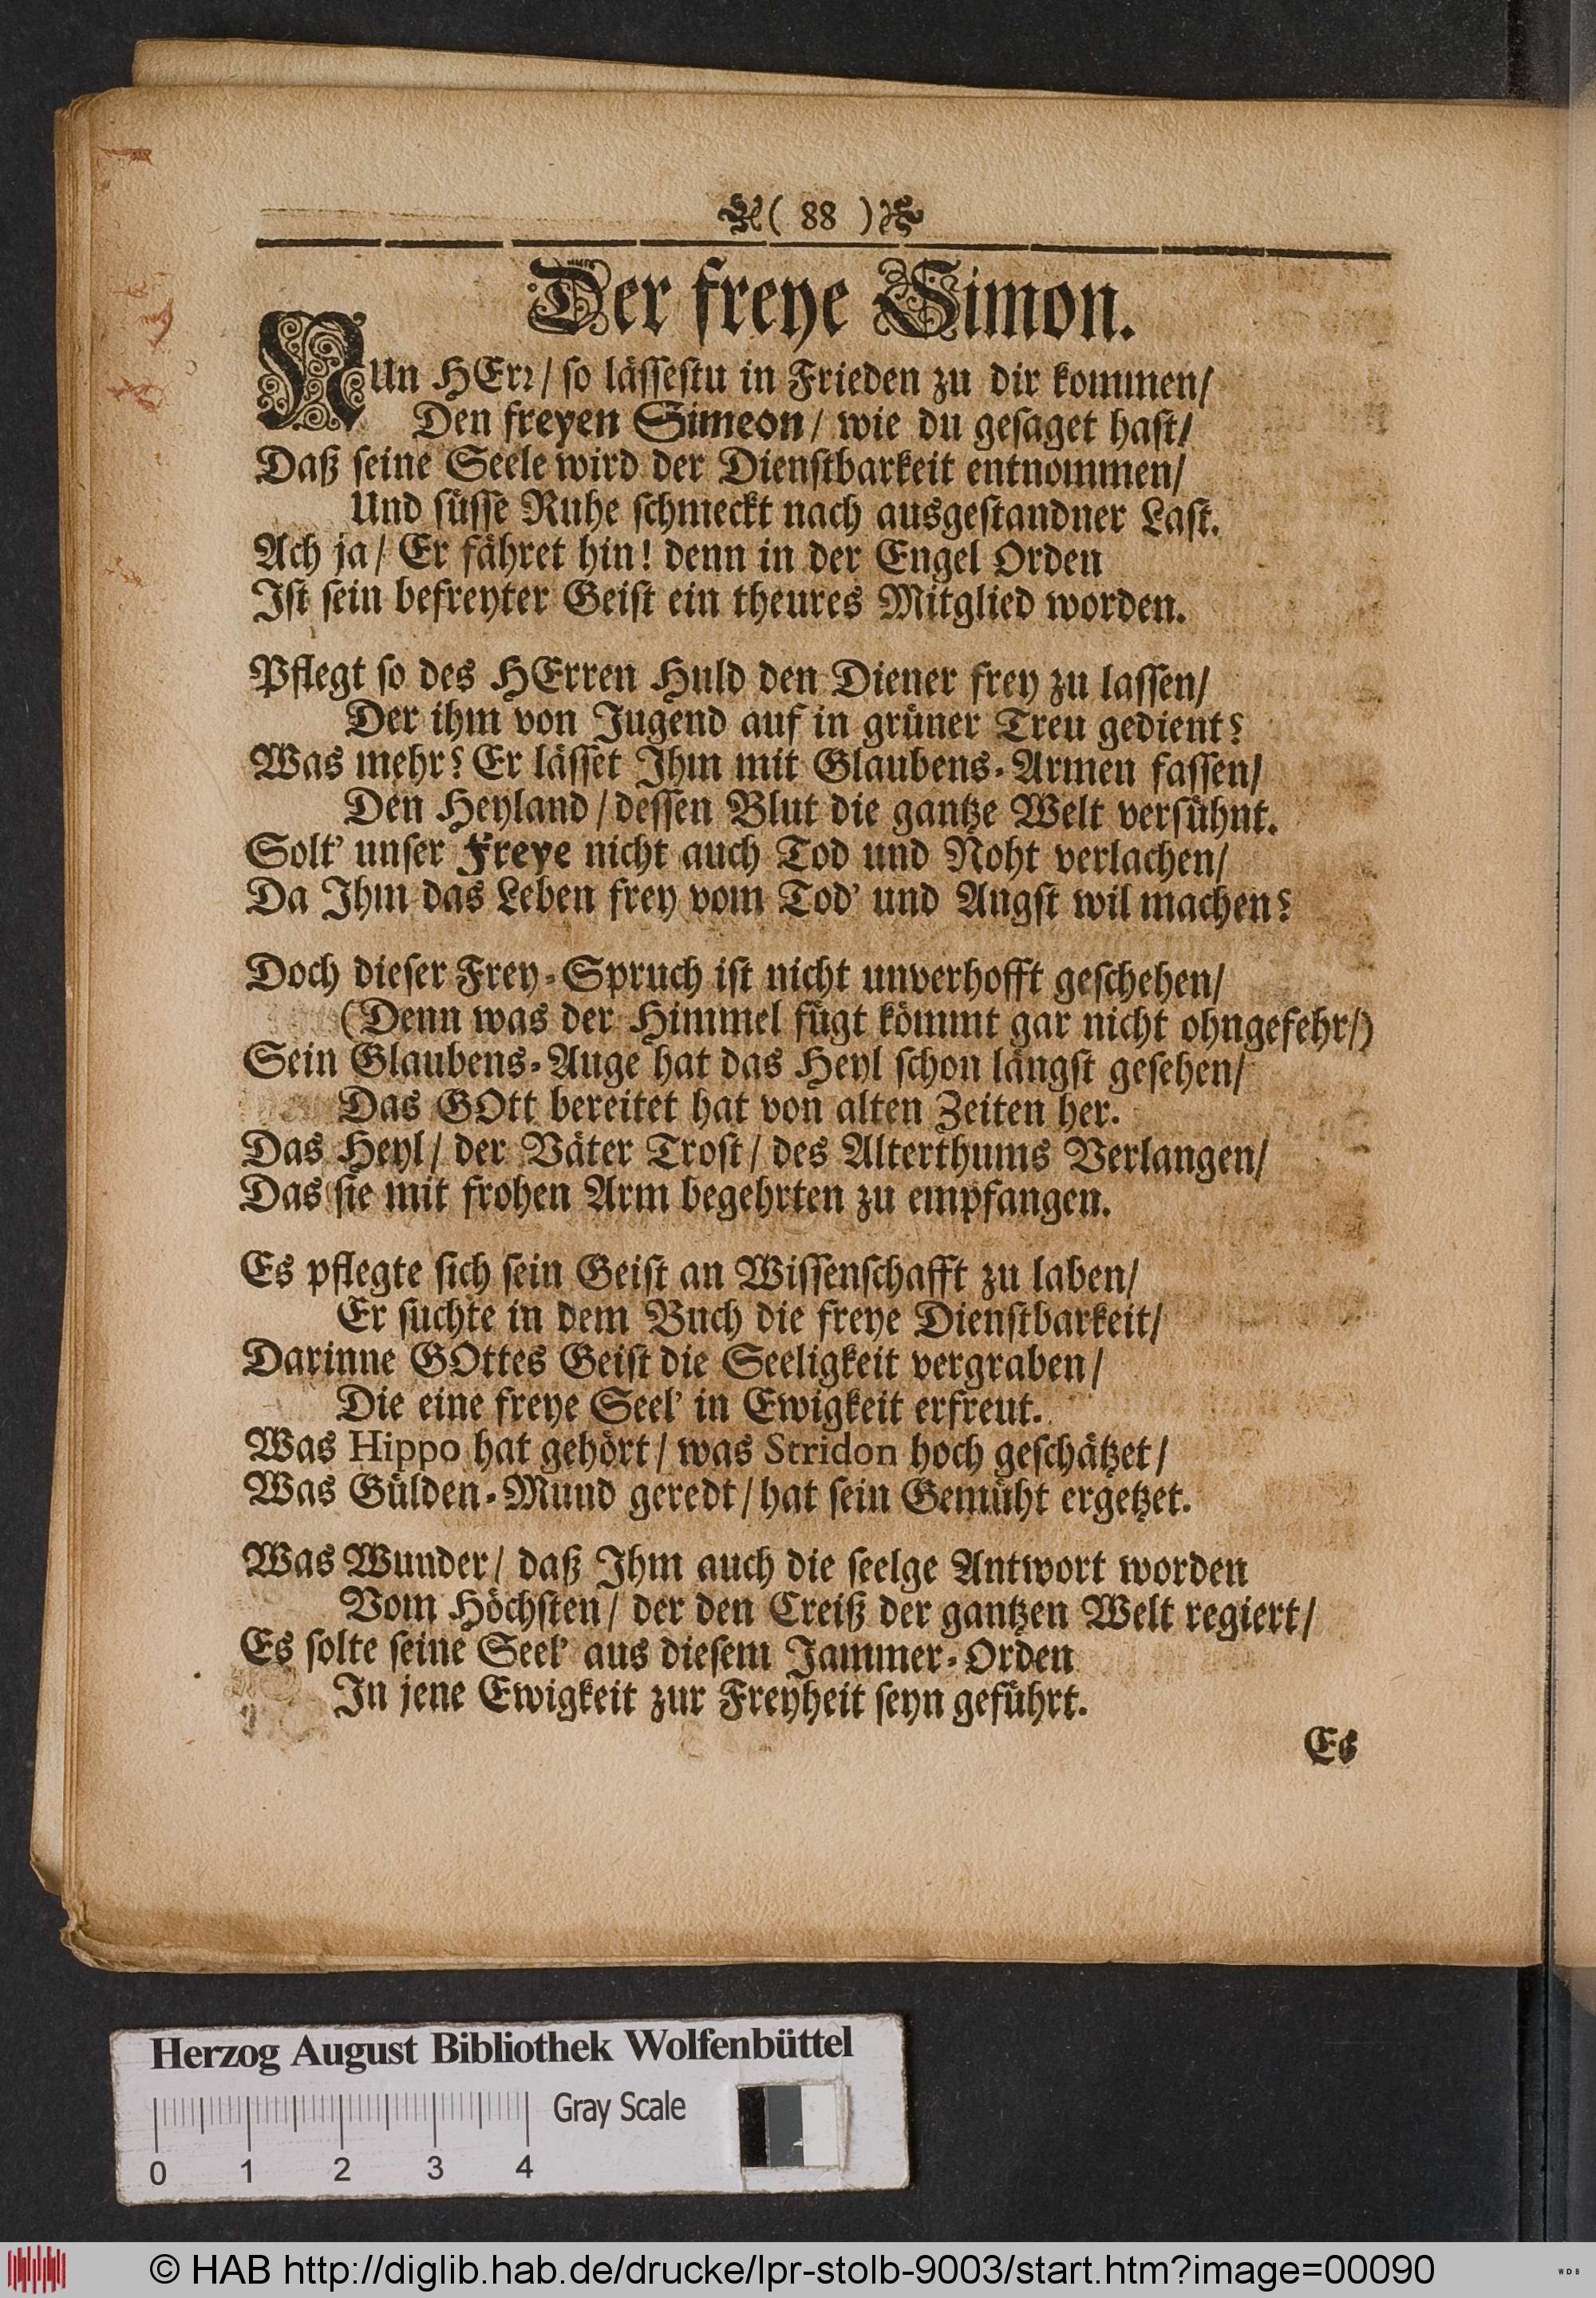 ( 88 )
Der freye Simon.
NUn HErr/ so lässestu in Frieden zu dir kommen/
Den freyen Simeon/ wie du gesaget hast/
Daß seine Seele wird der Dienstbarkeit entnommen/
Und süsse Ruhe schmeckt nach ausgestandner Last.
Ach ja/ Er fähret hin! denn in der Engel Orden
Ist sein befreyter Geist ein theures Mitglied worden.
Pflegt so des HErren Huld den Diener frey zu lassen/
Der ihm von Jugend auf in grüner Treu gedient?
Was mehr? Er lässet Ihm mit Glaubens-Armen fassen/
Den Heyland/ dessen Blut die gantze Welt versühnt.
Solt' unser Freye nicht auch Tod und Noht verlachen/
Da Ihm das Leben frey vom Tod' und Angst wil machen?
Doch dieser Frey-Spruch ist nicht unverhofft geschehen/
(Denn was der Himmel fügt kömmt gar nicht ohngefehr/)
Sein Glaubens-Auge hat das Heyl schon längst gesehen/
Das GOtt bereitet hat von alten Zeiten her.
Das Heyl/ der Väter Trost/ des Alterthums Verlangen/
Das sie mit frohen Arm begehrten zu empfangen.
Es pflegte sich sein Geist an Wissenschafft zu laben/
Er suchte in dem Buch die freye Dienstbarkeit/
Darinne GOttes Geist die Seeligkeit vergraben/
Die eine freye Seel' in Ewigkeit erfreut.
Was Hippo hat gehört/ was Stridon hoch geschätzet/
Was Gülden-Mund geredt/ hat sein Gemüht ergetzet.
Was Wunder/ daß Ihm auch die seelge Antwort worden
Vom Höchsten/ der den Creiß der gantzen Welt regiert/
Es solte seine Seel' aus diesem Jammer-Orden
In jene Ewigkeit zur Freyheit seyn geführt.
Es
Herzog August Bibliothek Wolfenbüttel
Gray Scale
0 1 2 3 4
© HAB http://diglib.hab.de/drucke/lpr-stolb-9003/start.htm?image=00090
WDB